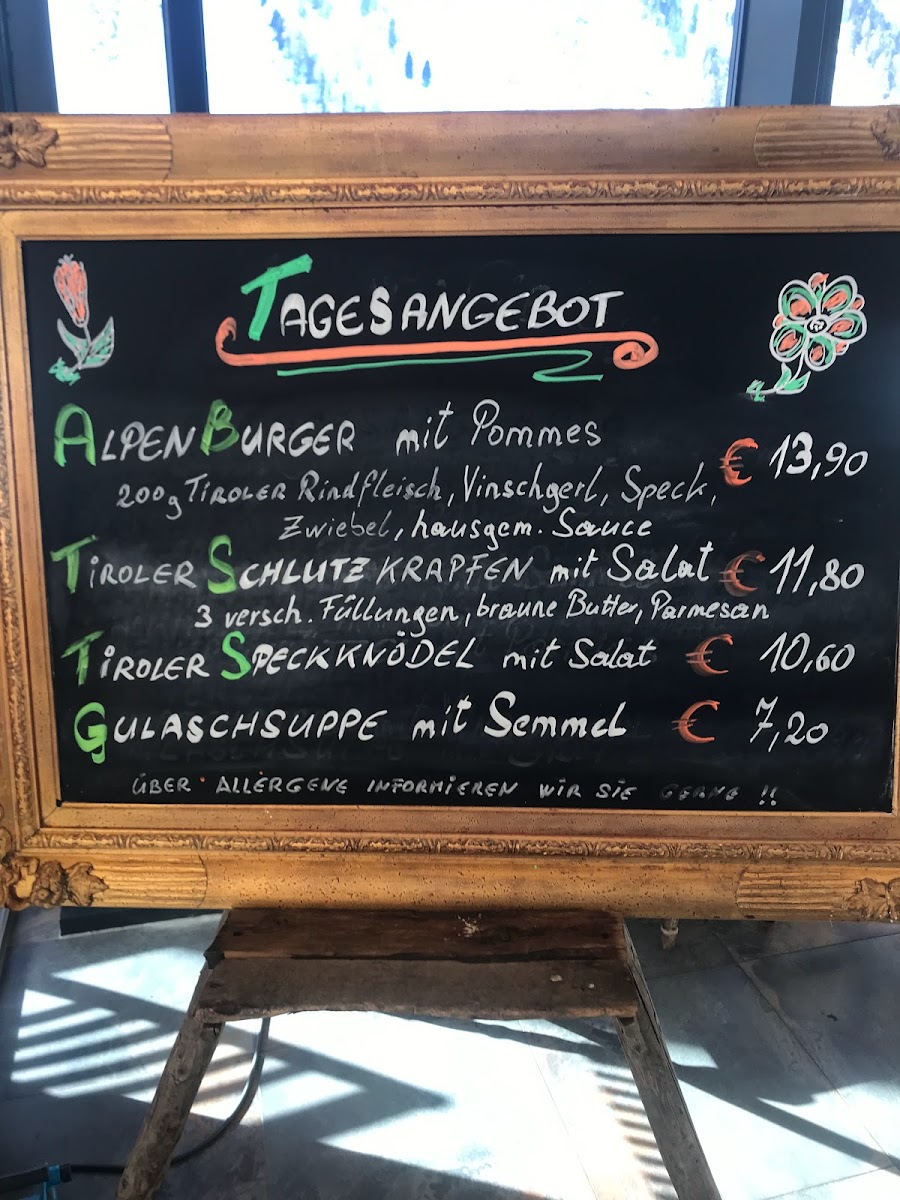 TAGESANGEBOT
ALPENBURGER mit Pommes € 13,90
200g TIROLER Rindfleisch, Vinschgerl, Speck,
Zwiebel, hausgem. Sauce
TIROLER SCHLUTZKRAPFEN mit Salat € 11,80
3 versch. Füllungen, braune Butter, Parmesan
TIROLER SPECKKNÖDEL mit Salat € 10,60
GULASCHSUPPE mit Semmel € 7,20
ÜBER ALLERGENE INFORMIEREN WIR SIE GERNE !!